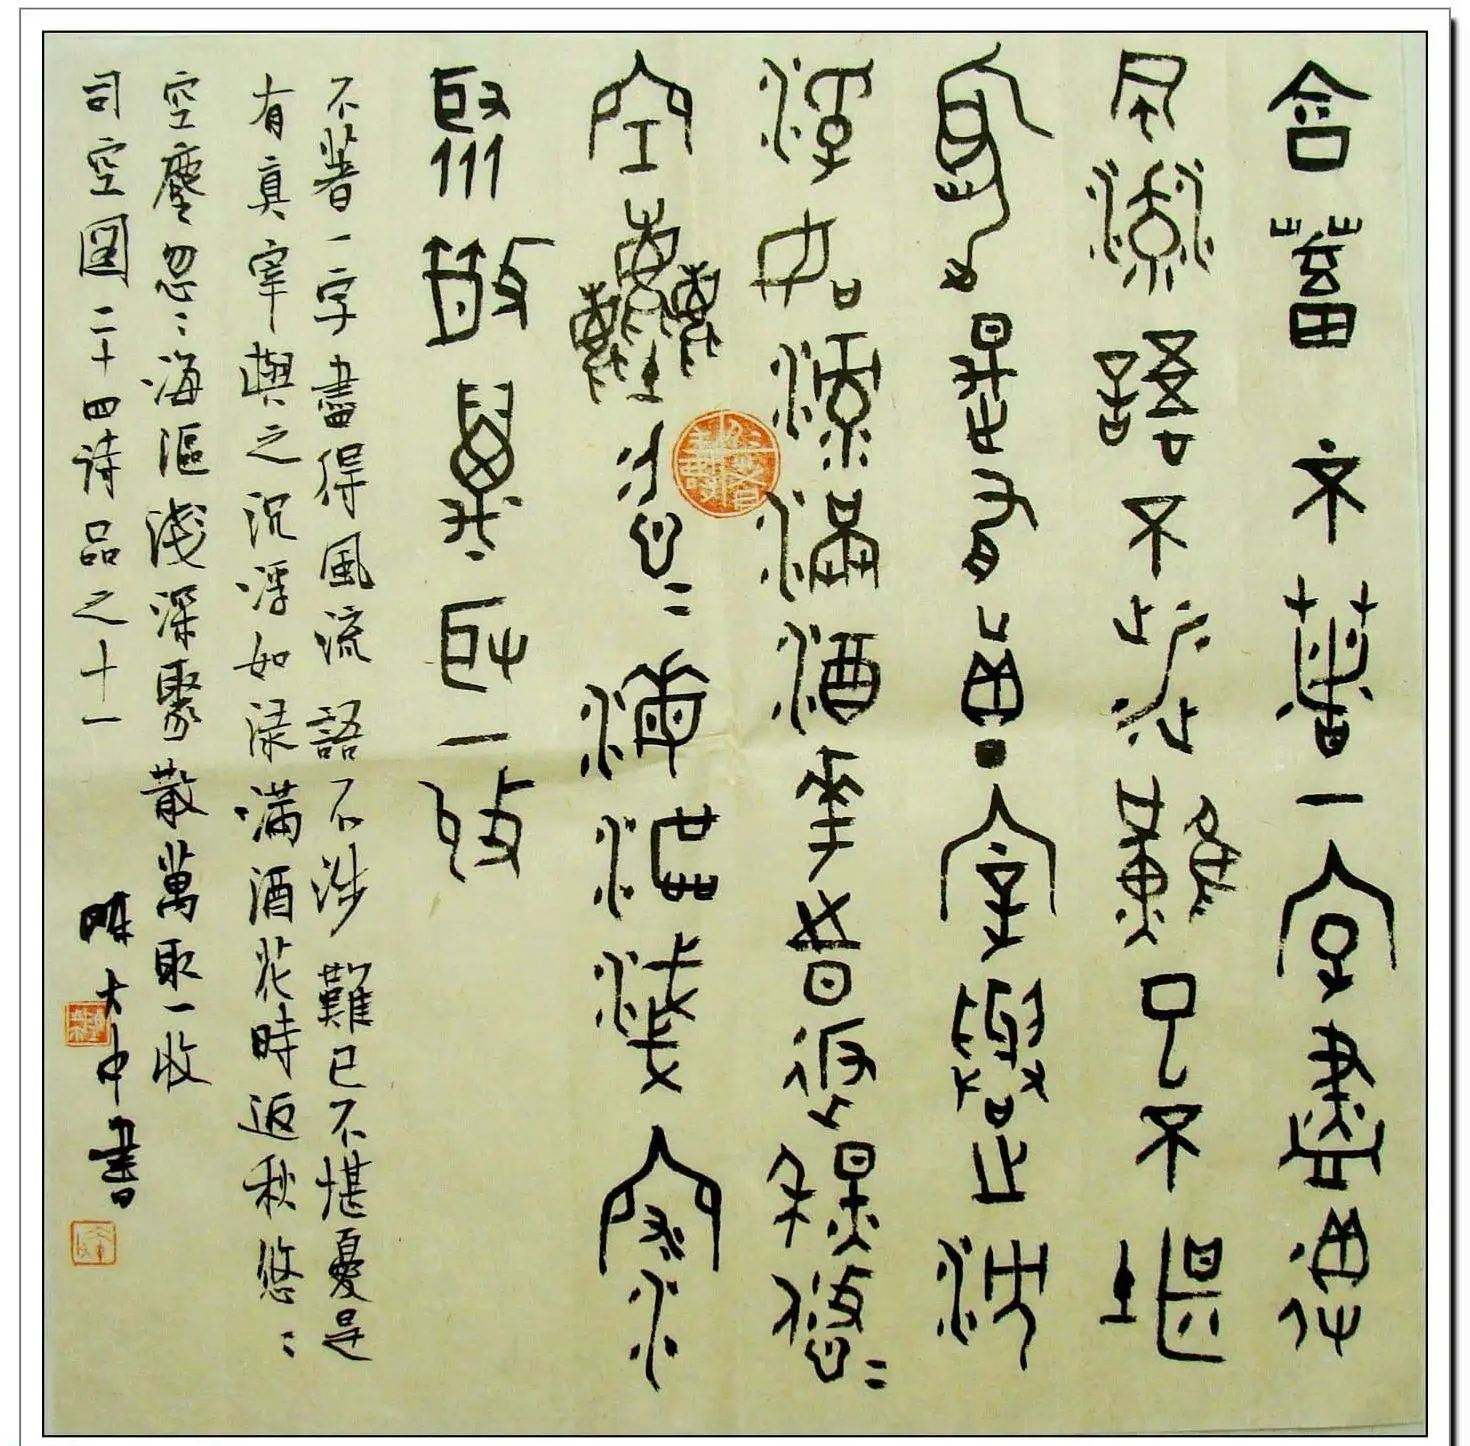 含蓄 不著一字盡得
風流語不涉難已不堪
憂是有真宰與之沉
浮如渌滿酒花時返秋悠〻
空塵忽〻海漚淺深
聚散萬取一收
不著一字盡得風流語不涉難已不堪憂是
有真宰與之沉浮如渌滿酒花時返秋悠〻
空塵忽〻海漚淺深聚散萬取一收
司空圖二十四詩品之十一 陳大中書